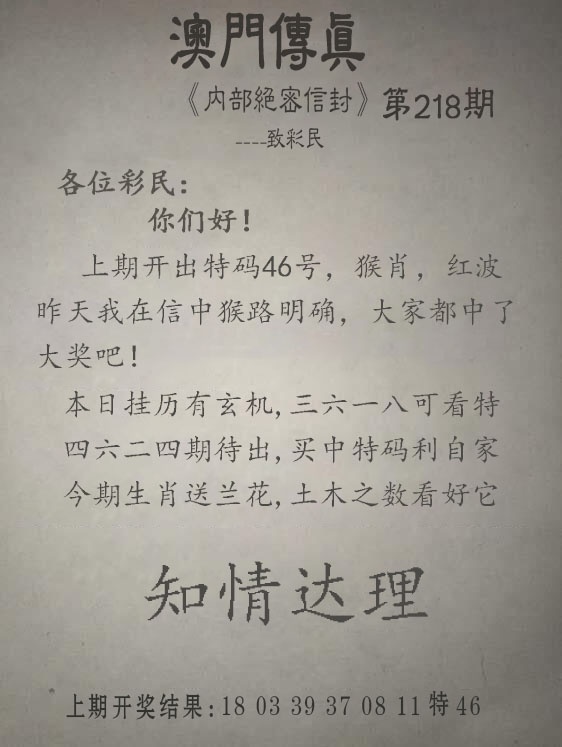 澳門傳真
《内部絕密信封》第218期
----致彩民
各位彩民：
你们好！
上期开出特码46号，猴肖，红波
昨天我在信中猴路明确，大家都中了
大奖吧！
本日挂历有玄机,三六一八可看特
四六二四期待出,买中特码利自家
今期生肖送兰花,土木之数看好它
知情达理
上期开奖结果:18 03 39 37 08 11 特 46